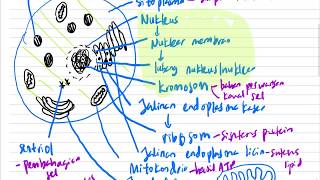 Sitoplasma
Nukleus
Nuklear membran
lubang nukleus/nuklear
Kromosom
bahan pewarisan
kawal sel
Jalinan endoplasma kasar
ribosom - sintesis protein
sentriol
Jalinan endoplasma licin - sintesis
lipid
pembahagian
sel
Mitokondria - hasil ATP